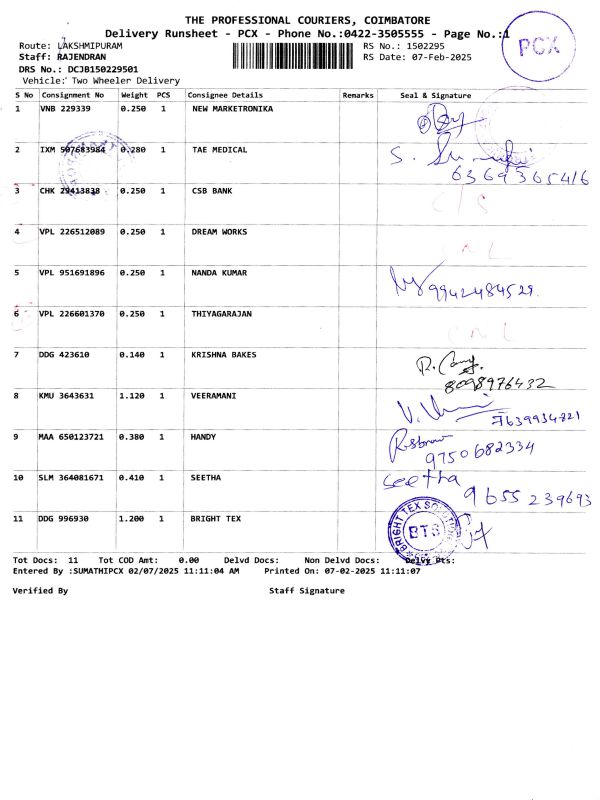 THE PROFESSIONAL COURIERS, COIMBATORE
Delivery Runsheet - PCX - Phone No.:0422-3505555 - Page No.:1
PCX
Route: LAKSHMIPURAM
RS No.: 1502295
Staff: RAJENDRAN
RS Date: 07-Feb-2025
DRS No.: DCJB150229501
Vehicle: Two Wheeler Delivery
S No Consignment No Weight PCS Consignee Details Remarks Seal & Signature
1 VNB 229339 0.250 1 NEW MARKETRONIKA
2 IXM 507683984 0.280 1 TAE MEDICAL
6369365416
3 CHK 29413838 0.250 1 CSB BANK
4 VPL 226512089 0.250 1 DREAM WORKS
5 VPL 951691896 0.250 1 NANDA KUMAR
9942484529.
6 VPL 226601370 0.250 1 THIYAGARAJAN
7 DDG 423610 0.140 1 KRISHNA BAKES
8098976432
8 KMU 3643631 1.120 1 VEERAMANI
7639934821
9 MAA 650123721 0.380 1 HANDY
9750682334
10 SLM 364081671 0.410 1 SEETHA seetha
9655239693
11 DDG 996930 1.200 1 BRIGHT TEX
BRIGHT TEX SOLUTIONS
BTS
Tot Docs: 11 Tot COD Amt: 0.00 Delvd Docs: Non Delvd Docs: Delvy Pts:
Entered By :SUMATHIPCX 02/07/2025 11:11:04 AM Printed On: 07-02-2025 11:11:07
Verified By Staff Signature